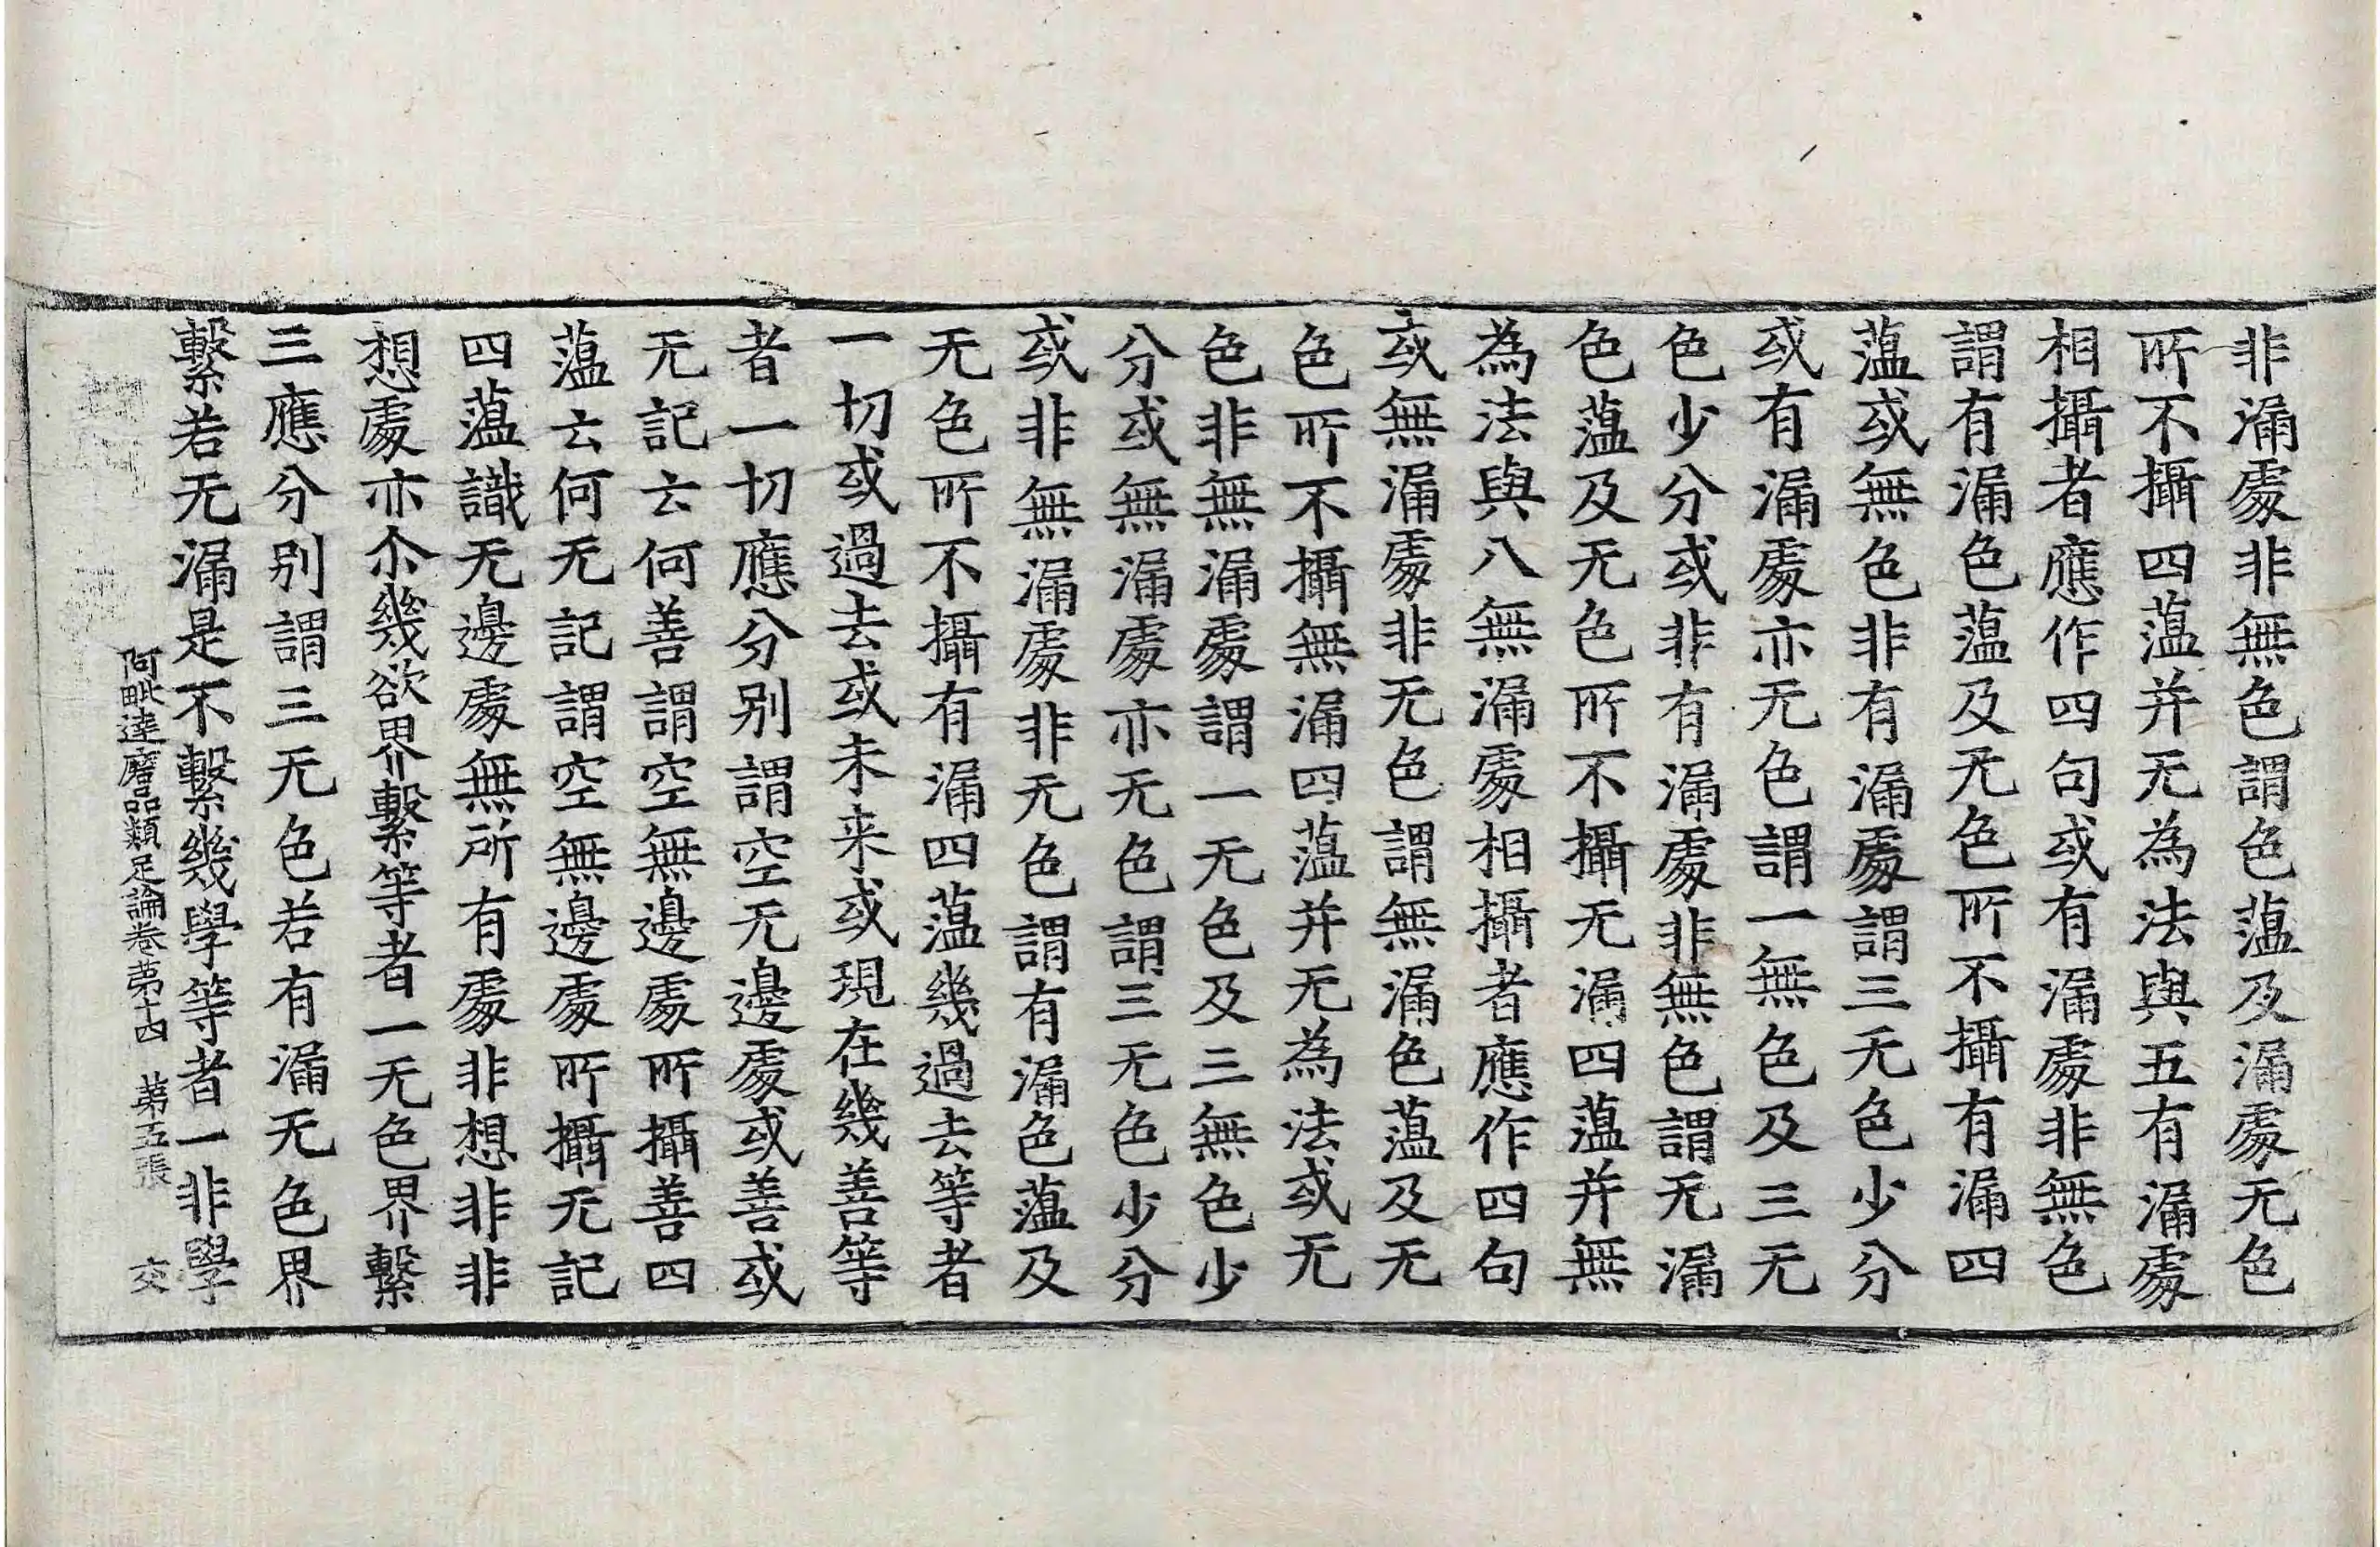 非漏處非無色謂色蕰及漏處无色
所不攝四蕰并无為法與五有漏處
相攝者應作四句或有漏處非無色
謂有漏色蕰及无色所不攝有漏四
蕰或無色非有漏處謂三无色少分
或有漏處亦无色謂一無色及三无
色少分或非有漏處非無色謂无漏
色蕰及无色所不攝无漏四蕰并無
為法與八無漏處相攝者應作四句
或無漏處非无色謂無漏色蕰及无
色所不攝無漏四蕰并无為法或无
色非無漏處謂一无色及三無色少
分或無漏處亦无色謂三无色少分
或非無漏處非无色謂有漏色蕰及
无色所不攝有漏四蕰幾過去等者
一切或過去或未来或現在幾善等
者一切應分别謂空无邊處或善或
无記云何善謂空無邊處所攝善四
蕰云何无記謂空無邊處所攝无記
四蕰識无邊處無所有處非想非非
想處亦尒幾欲界繫等者一无色界繫
三應分别謂三无色若有漏无色界
繫若无漏是不繫幾學等者一非學
阿毗達磨品類足論卷苐十四 苐五張 交